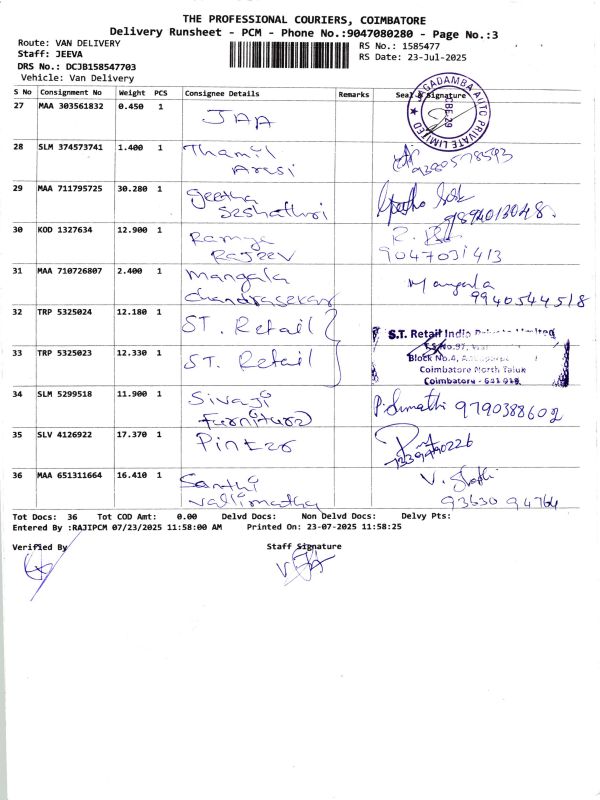 THE PROFESSIONAL COURIERS, COIMBATORE
Delivery Runsheet - PCM - Phone No.:9047080280 - Page No.:3
Route: VAN DELIVERY
RS No.: 1585477
Staff: JEEVA
RS Date: 23-Jul-2025
DRS No.: DCJB158547703
Vehicle: Van Delivery
S No Consignment No Weight PCS Consignee Details Remarks Seal & Signature
27 MAA 303561832 0.450 1 JAA
JAGADAMBA AUTO PRIVATE LIMITED
CBE-29
28 SLM 374573741 1.400 1 Thamil
Arasi
9380578593
29 MAA 711795725 30.280 1 Geetha
Seshathri
9894013048
30 KOD 1327634 12.900 1 Ramya
Rajeev
9047031413
31 MAA 710726807 2.400 1 Mangala
chandrasekar
Mangala
9940544518
32 TRP 5325024 12.180 1 ST. Retail
33 TRP 5325023 12.330 1 ST. Retail
S.T. Retail India Private Limited
Block No.4,
Coimbatore North Taluk
Coimbatore - 641 018
34 SLM 5299518 11.900 1 Sivaji
furniture
P. Sumathi 9790388602
35 SLV 4126922 17.370 1 Pintoo
7339490226
36 MAA 651311664 16.410 1 Santhi
vallimatha
93630 94764
Tot Docs: 36 Tot COD Amt: 0.00 Delvd Docs: Non Delvd Docs: Delvy Pts:
Entered By :RAJIPCM 07/23/2025 11:58:00 AM Printed On: 23-07-2025 11:58:25
Verified By Staff Signature